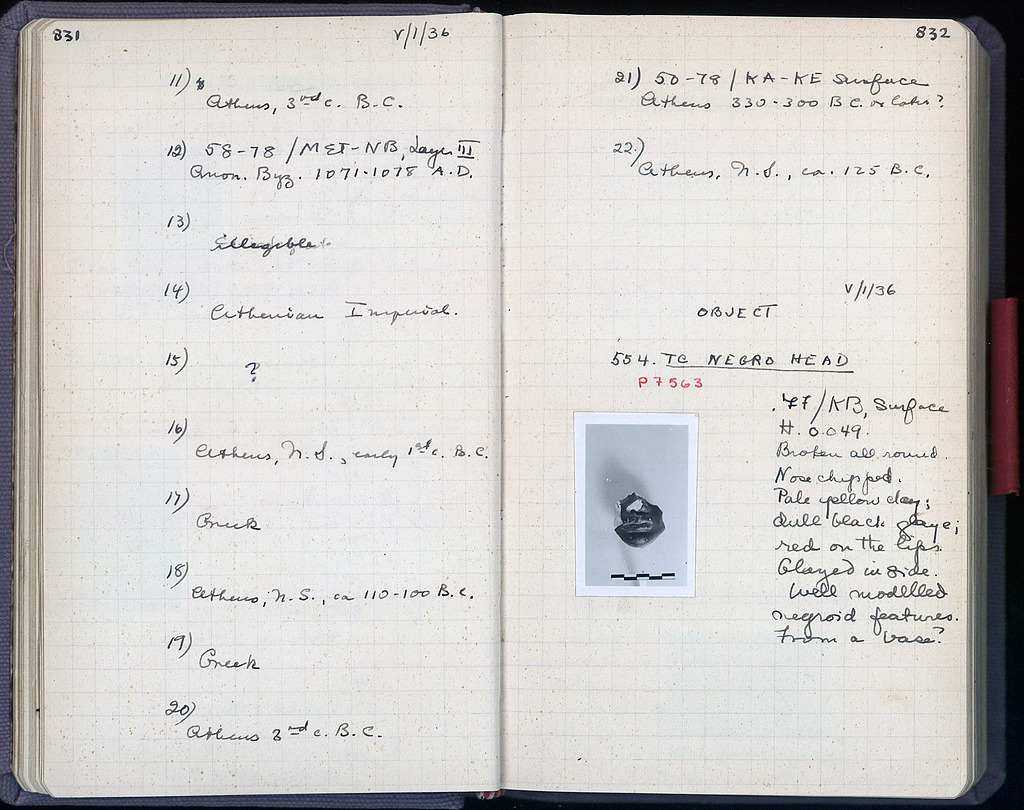 831
V/1/36
11)
Athens, 3rd c. B.C.
12) 58-78 / MET-NB, Layer III
Anon. Byz. 1071-1078 A.D.
13)
illegible
14)
Athenian Imperial.
15)
?
16)
Athens, N.S., early 1st c. B.C.
17)
Greek
18)
Athens, N.S., ca 110-100 B.C.
19)
Greek
20)
Athens 3rd c. B.C.
832
21) 50-78 / KA-KE Surface
Athens 330-300 B.C. or later?
22)
Athens, N.S., ca. 125 B.C.
V/1/36
OBJECT
554. TC NEGRO HEAD
P 7563
/KB, Surface
H. 0.049.
Broken all round.
Nose chipped.
Pale yellow clay;
dull black glaze;
red on the lips.
Glazed inside.
Well modelled
negroid features.
From a vase?